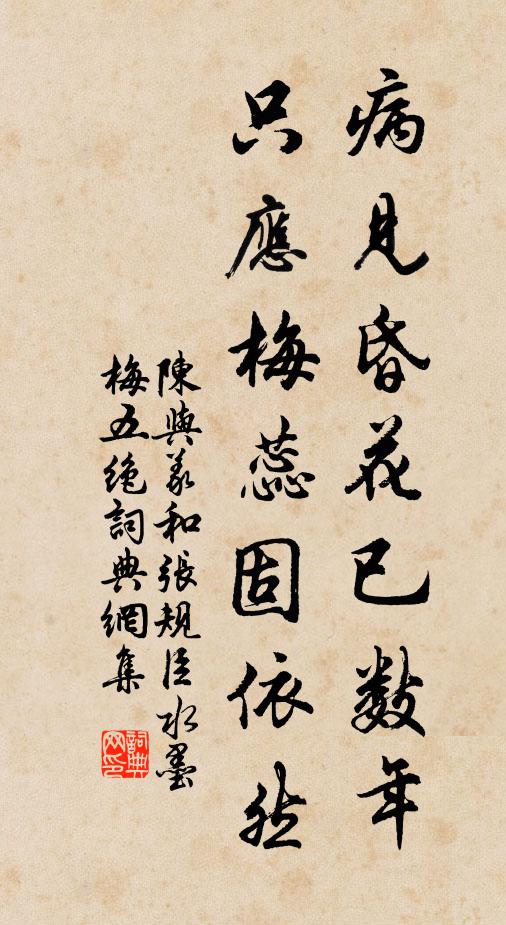 病見昏花已數年
只應梅蕊固依然
陳與義和張規臣水墨
梅五絶詞典網集
詞典網印